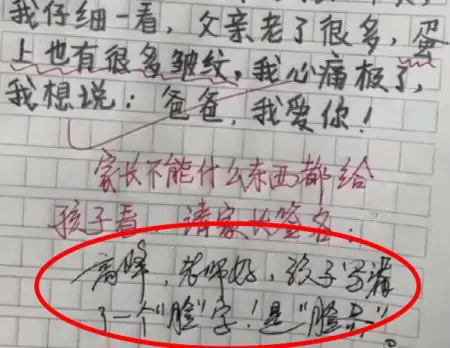 我仔细一看，父亲老了很多，蛋
上也有很多皱纹，我心痛极了，
我想说：爸爸，我爱你！
家长不能什么东西都给
孩子看，请家长签名：
高峰，老师好，孩子写漏
了一个"脸"字！是"脸蛋"。